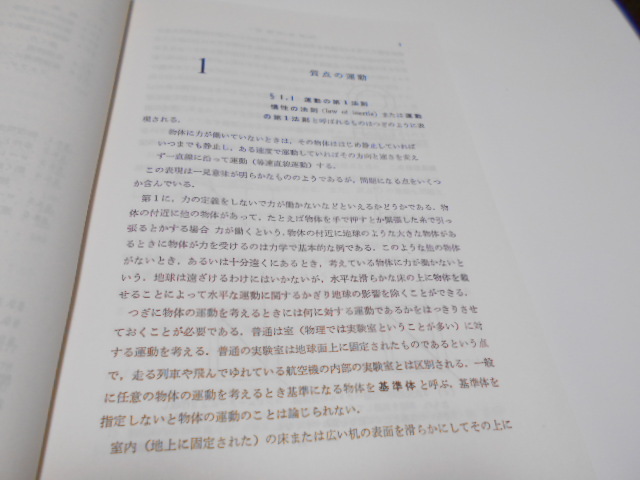 1
質点の運動
§1.1 運動の第1法則
慣性の法則 (law of inertia) または運動
の第1法則と呼ばれるものはつぎのように表
現される.
物体に力が働いていないときは, その物体ははじめ静止していれば
いつまでも静止し, ある速度で運動していればその方向と速さを変え
ず一直線に沿って運動 (等速直線運動) する.
この表現は一見意味が明らかなもののようであるが, 問題になる点をいくつ
か含んでいる.
第1に, 力の定義をしないで力が働かないなどといえるかどうかである. 物
体の付近に他の物体があって, たとえば物体を手で押すとか緊張した糸で引っ
張るとかする場合 力が働くという. 物体の付近に地球のような大きな物体があ
るときに物体が力を受けるのは力学で基本的な例である. このような他の物体
がないとき, あるいは十分遠くにあるとき, 考えている物体に力が働かないと
いう. 地球は遠ざけるわけにはいかないが, 水平な滑らかな床の上に物体を載
せることによって水平な運動に関するかぎり地球の影響を除くことができる.
つぎに物体の運動を考えるときには何に対する運動であるかをはっきりさせ
ておくことが必要である. 普通は室 (物理では実験室ということが多い) に対
する運動を考える. 普通の実験室は地球面上に固定されたものであるという点
で, 走る列車や飛んでゆれている航空機の内部の実験室とは区別される. 一般
に任意の物体の運動を考えるとき基準になる物体を基準体と呼ぶ. 基準体を
指定しないと物体の運動のことは論じられない.
室内 (地上に固定された) の床または広い机の表面を滑らかにしてその上に